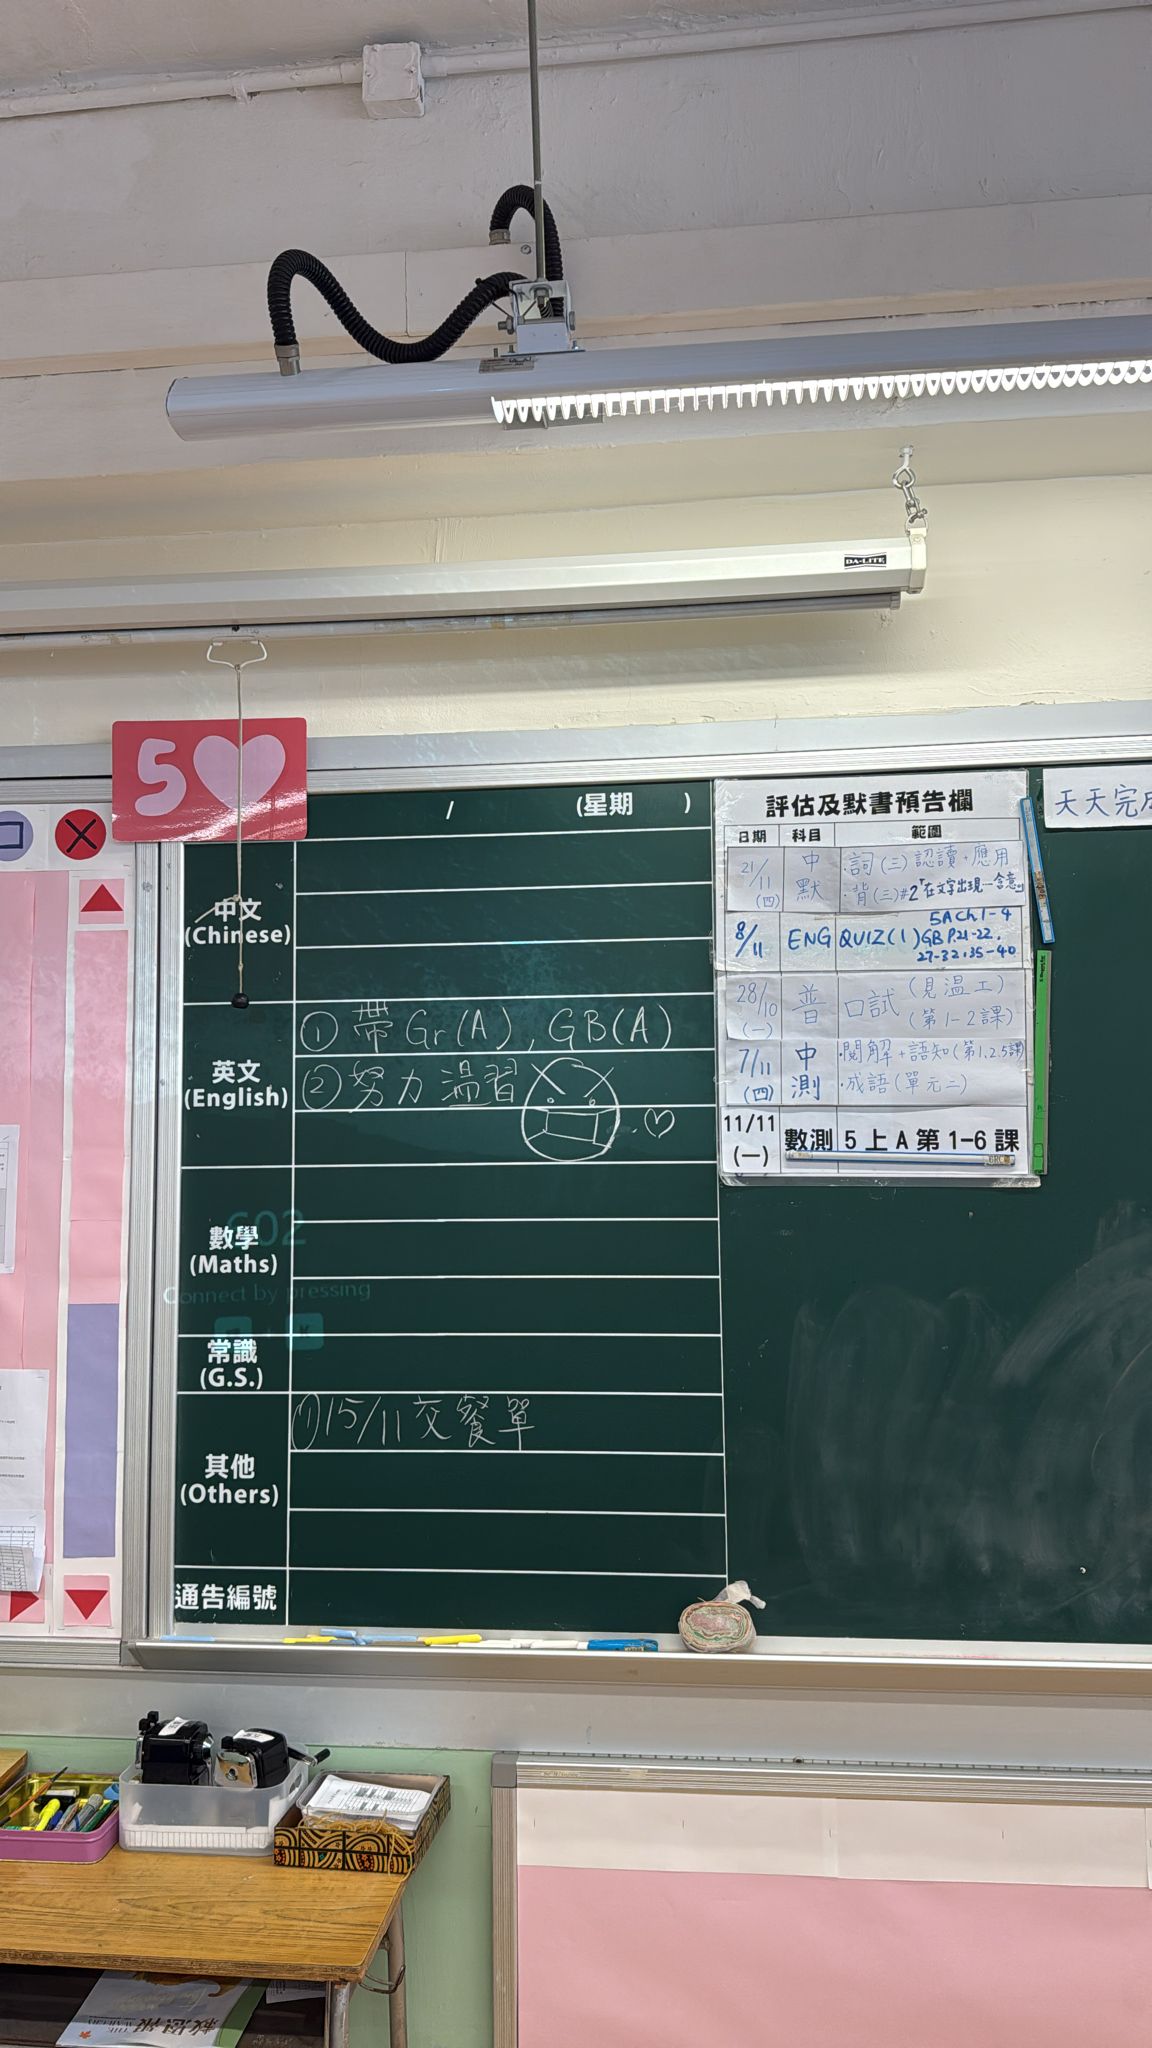 DA-LITE
5
/ (星期 )
中文
(Chinese)
英文
(English)
① 帶 Gr(A), GB(A)
② 努力溫習
數學
(Maths)
602
Connect by pressing
K
常識
(G.S.)
其他
(Others)
① 15/11 交餐單
通告編號
評估及默書預告欄
日期 科目 範圍
21/11 (四) 中默 ·詞(三) 認讀+應用
·背(三)#2「在文字出現…含意。」
8/11 ENG QUIZ(1) 5A Ch1-4
GB P.21-22,
27-32, 35-40
28/10 (一) 普 口試 (見溫工)
(第1-2課)
7/11 (四) 中測 ·閱解+語知(第1.2.5課)
·成語(單元二)
11/11 (一) 數測 5上A第1-6課
天天完成